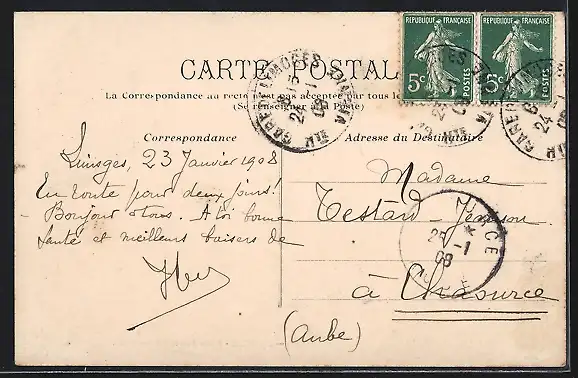 REPUBLIQUE FRANÇAISE REPUBLIQUE FRANÇAISE
5c POSTES 5c POSTES
CARTE POSTALE
La Correspondance au recto n'est pas acceptée par tous les
(Se renseigner à la Poste)
GARE LIMOGES Hte VIENNE
24 -1
08
Correspondance
Adresse du Destinataire
Limoges, 23 Janvier 1908
En route pour deux jours!
Bonjour à tous. A toi bonne
santé et meilleurs baisers de
Madame
Testard-
25 -1
08
à Chaource
(Aube)